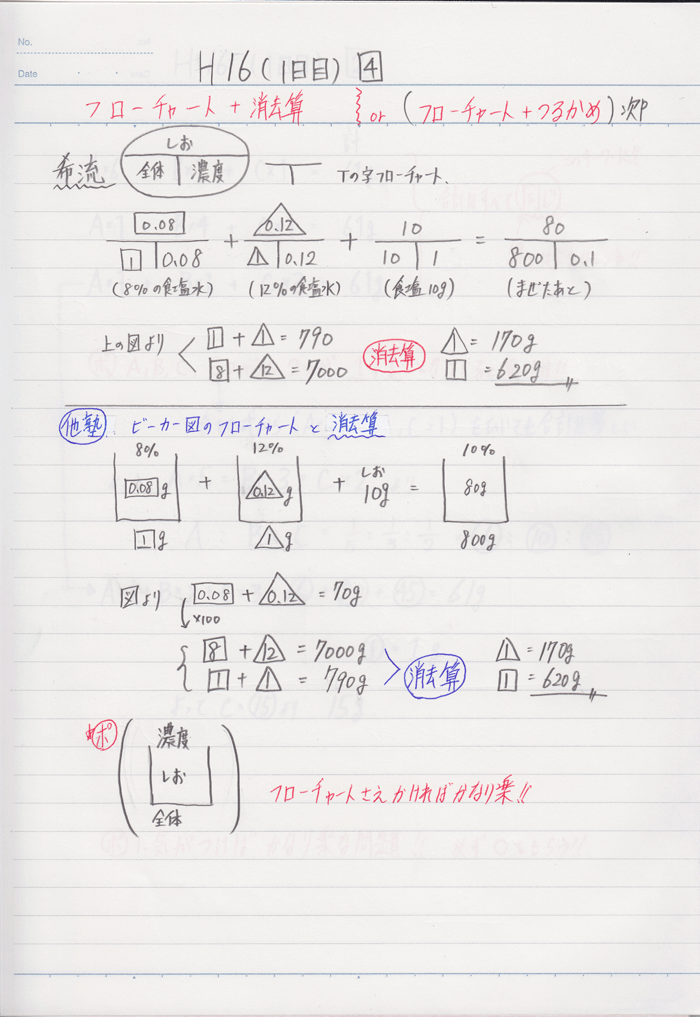 No.
Date
H16(1日目) 4
フローチャート + 消去算 or (フローチャート+つるかめ)次P
しお
希流 全体 濃度 Tの字フローチャート.
0.08 + 0.12 + 10 = 80
1 0.08 1 0.12 10 1 800 0.1
(8%の食塩水) (12%の食塩水) (食塩10g) (まぜたあと)
上の図より 1 + 1 = 790 消去算 1 = 170g
8 + 12 = 7000 1 = 620g
他塾. ビーカー図のフローチャートと消去算
8% 12% 10%
0.08 g + 0.12 g + しお 10g = 80g
1 g 1 g 800g
図より 0.08 + 0.12 = 70g
×100
8 + 12 = 7000g 消去算 1 = 170g
1 + 1 = 790g 1 = 620g
ポ 濃度
しお フローチャートさえかければかなり楽!!
全体